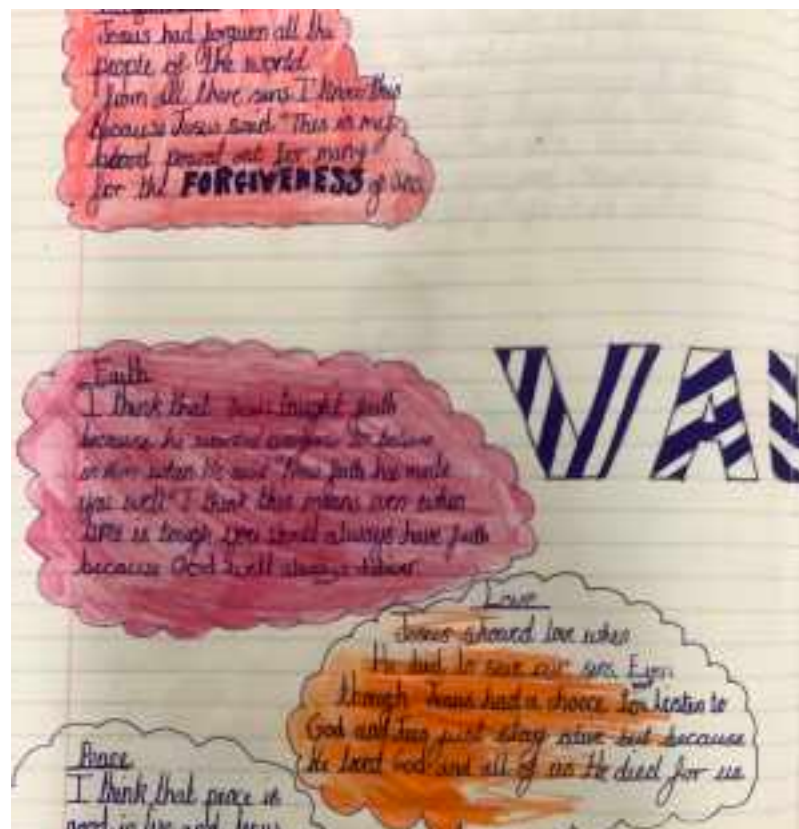 Jesus had forgiven all the
people of the world
from all there sins I know this
because Jesus said "This is my
blood poured out for many
for the FORGIVENESS of sins
VAL
Faith
I think that Jesus taught faith
because he wanted everyone to believe
in him when he said "Your faith has made
you well" I think this means even when
life is tough you should always have faith
because God will always
Love
Jesus showed love when
He died to save our sins Even
though Jesus had a choice to listen to
God and just stay alive but because
He loved God and all of us He died for us
Peace
I think that peace is
good in life and Jesus